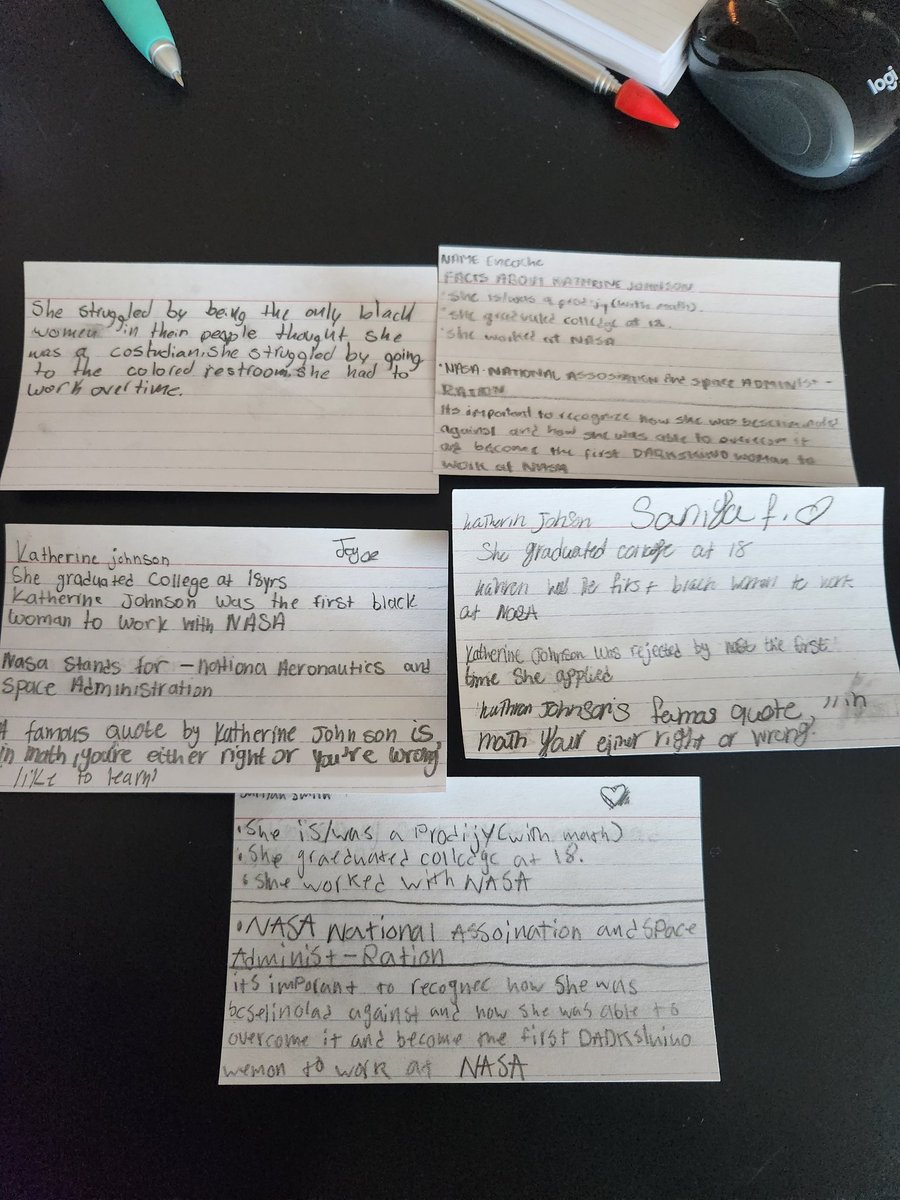 logi
She struggled by being the only black
women in their people thought she
was a costudian. She struggled by going
to the colored restroom. she had to
work overtime.
NAME
FACTS ABOUT KATHRINE JOHNSON
• She is/was a prodijy (with math).
• She graduated colledge at 18.
• She worked at NASA
• NASA - NATIONAL ASSOSIATION and space ADMINIST-
RATION
Its important to recognize how she was
against and how she was able to overcom it
and become the first DARKSKIND woman to
work at NASA
Katherine johnson Joyce
She graduated College at 18yrs
Katherine Johnson was the first black
woman to work with NASA
Nasa stands for - nationa Aeronautics and
Space Administration
A famous quote by Katherine Johnson is
in math, you're either right or you're wrong'
'like to learn'
Katherin Johson Saniya f.
She graduated college at 18
was the first black woman to work
at NASA
Katherine Johnson was rejected by the first
time she applied
Johnson's famas quote, "in
math your either right or wrong."
Smith
• She is/was a Prodijy (with math)
• She graeduated colledge at 18.
• She worked with NASA
• NASA National Assoination and Space
Administ-Ration
its imporant to recognee how She was
against and how she was able to
overcome it and become the first DADKskino
wemon to work at NASA